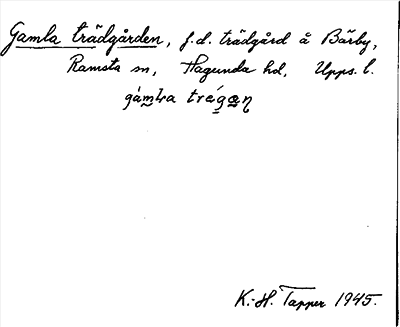 Gamla trädgården, f.d. trädgård å Bärby,
Ramsta sn, Hagunda hd, Upps. l.
K.-H. Tapper 1945.